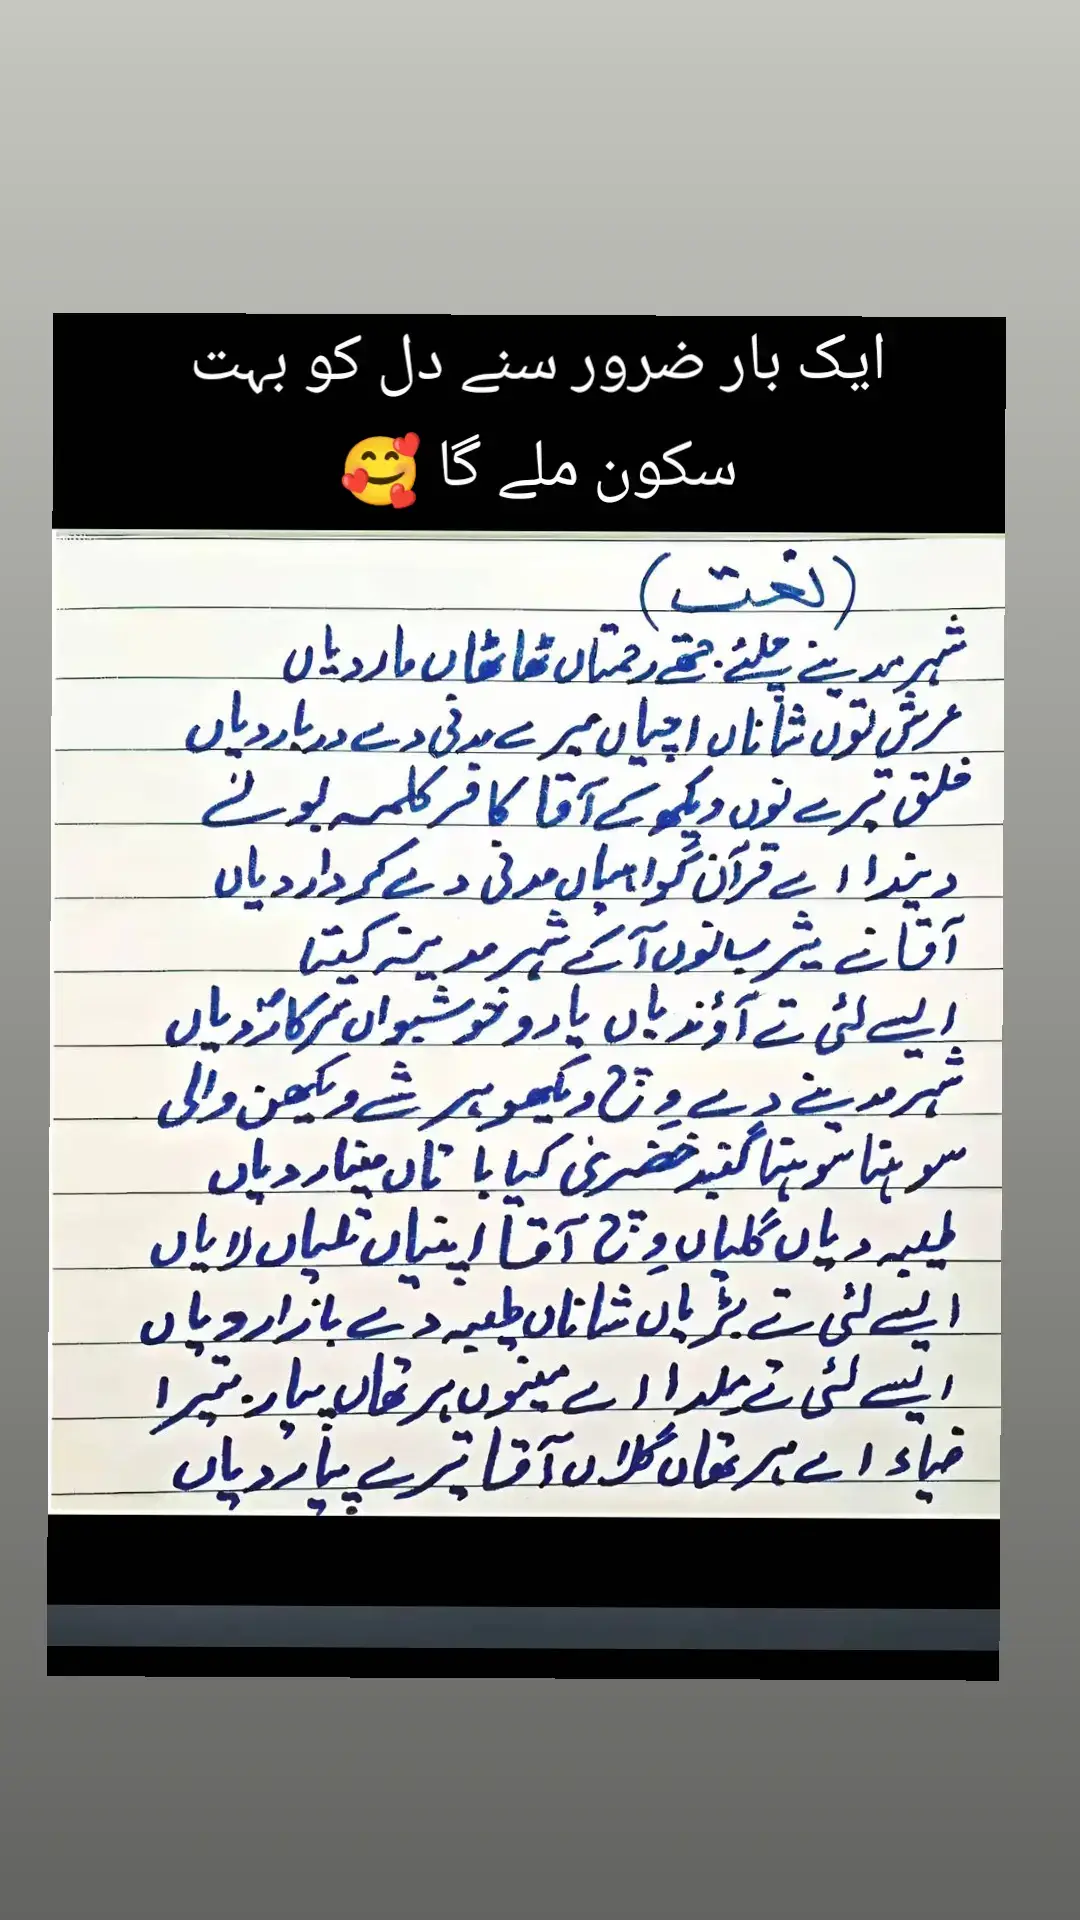 ایک بار ضرور سنے دل کو بہت
سکون ملے گا 🥰
(نعت)
شہر مدینے چلئے جتھے رحمتاں ٹھاٹھاں ماردیاں
عرش توں شاناں اچیاں میرے مدنی دے درباردیاں
خلق تیرے نوں ویکھ کے آقا کافر کلمہ بولے
دیندا اے قرآن گواہیاں مدنی دے کرداردیاں
آقا نے یثرب نوں آ کے شہر مدینہ کیتا
ایسے لئی تے آؤندیاں یارو خوشبواں سرکاردیاں
شہر مدینے دے وچ ویکھو ہر شے ویکھن والی
سوہنا سوہنا گنبد خضریٰ کیا باتاں میناردیاں
طیبہ دیاں گلیاں وچ آقا اپنیاں تلیاں لایاں
ایسے لئی تے بڑیاں شاناں طیبہ دے بازاردیاں
ایسے لئی تے ملدا اے مینوں ہر تھاں پیار تیرا
ضیاء اے ہر تھاں گلاں آقا تیرے پیاردیاں